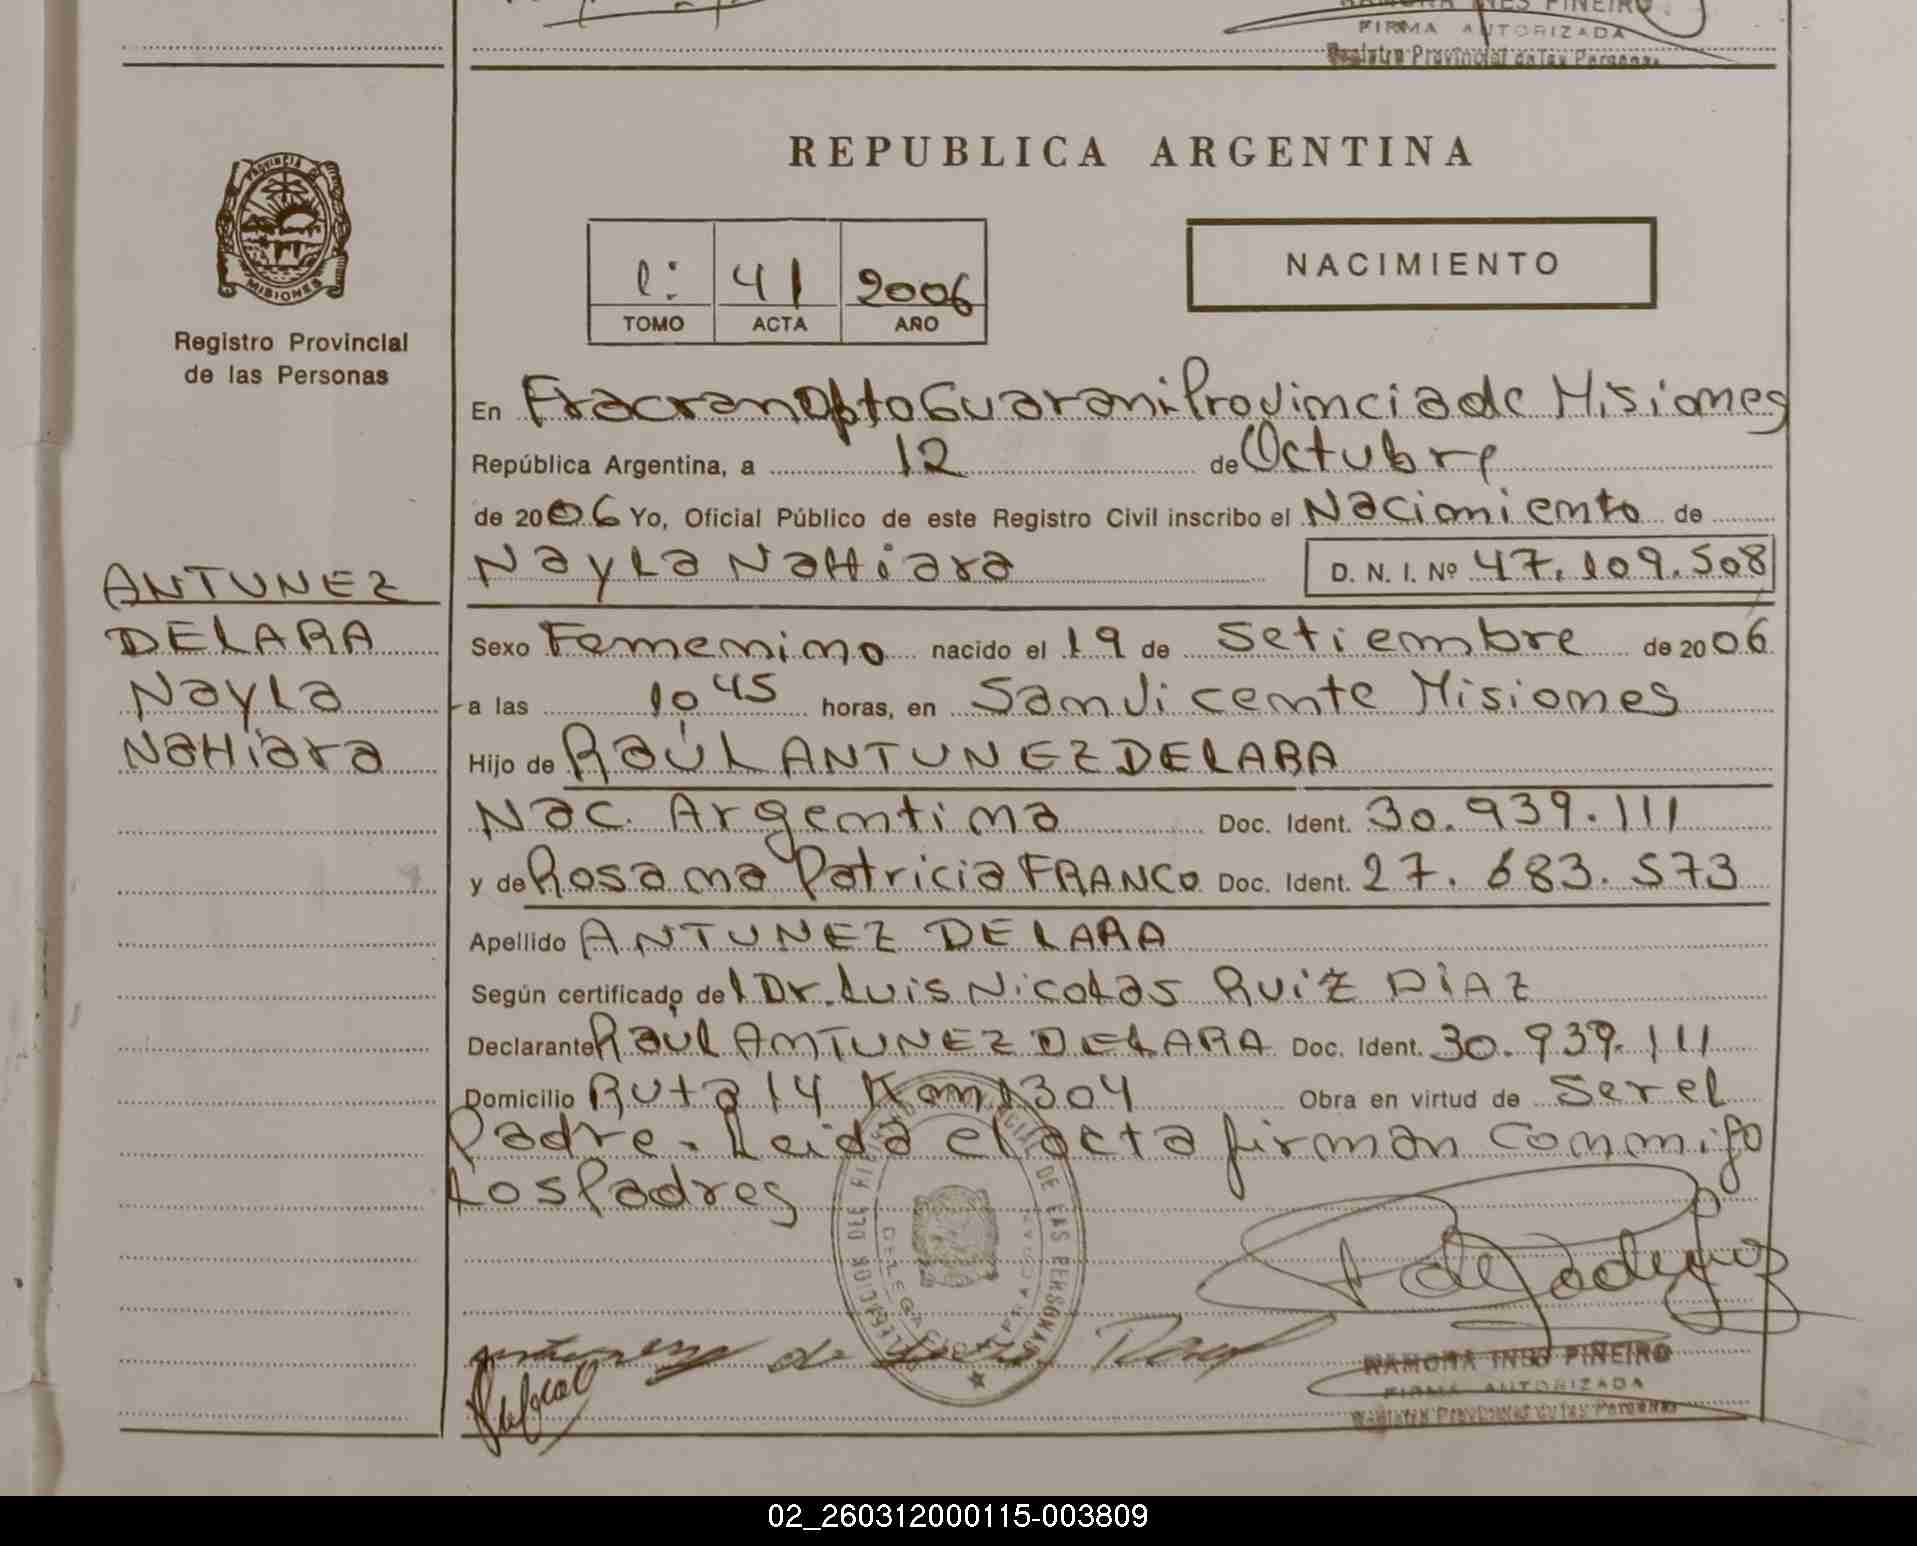 FIRMA AUTORIZADA
Registro Provincial de las Personas
PROVINCIA
MISIONES
Registro Provincial
de las Personas
REPUBLICA ARGENTINA
1: 41 2006
TOMO ACTA AÑO
NACIMIENTO
En Fracran Dpto Guarani Provincia de Misiones
República Argentina, a 12 de Octubre
de 2006 Yo, Oficial Público de este Registro Civil inscribo el Nacimiento de
Nayla NaHiara D. N. I. Nº 47.109.508
ANTUNEZ
DELARA
Nayla
NaHiara
Sexo Femenino nacido el 19 de Setiembre de 2006
a las 10 45 horas, en San Vicente Misiones
Hijo de Raúl ANTUNEZ DELARA
Nac. Argentina Doc. Ident. 30.939.111
y de Rosana Patricia FRANCO Doc. Ident. 27.683.573
Apellido ANTUNEZ DELARA
Según certificado del Dr. Luis Nicolas Ruiz DiAZ
Declarante Raúl ANTUNEZ DELARA Doc. Ident. 30.939.111
Domicilio Ruta 14 Km 1304 Obra en virtud de Ser el
Padre. Leida el acta firman conmigo
los Padres
antunez de Lara Raul
RAMONA INES PIÑEIRO
FIRMA AUTORIZADA
Registro Provincial de las Personas
02_260312000115-003809